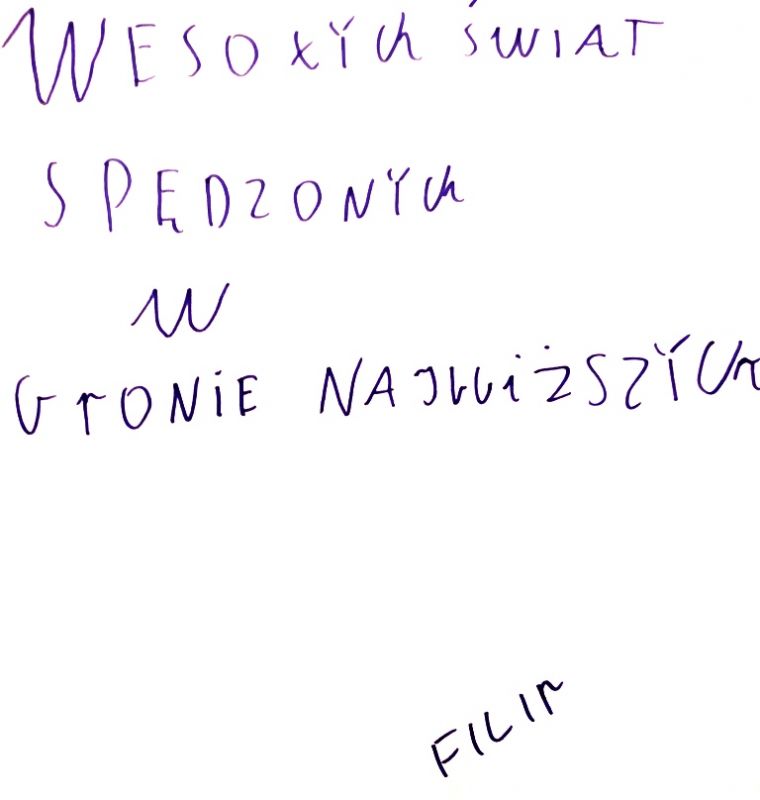 WESOŁYCH ŚWIAT
SPĘDZONYCH
W
GRONIE NAJBLIŻSZYCH
FILIP